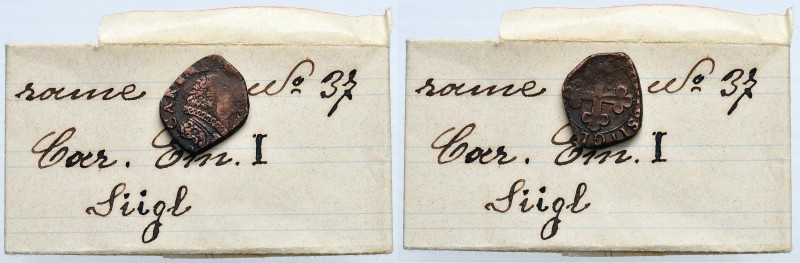 rame No. 37
CAR EM
Car. Em. I
Siigl
rame No. 37
SIIGL
Car. Em. I
Siigl